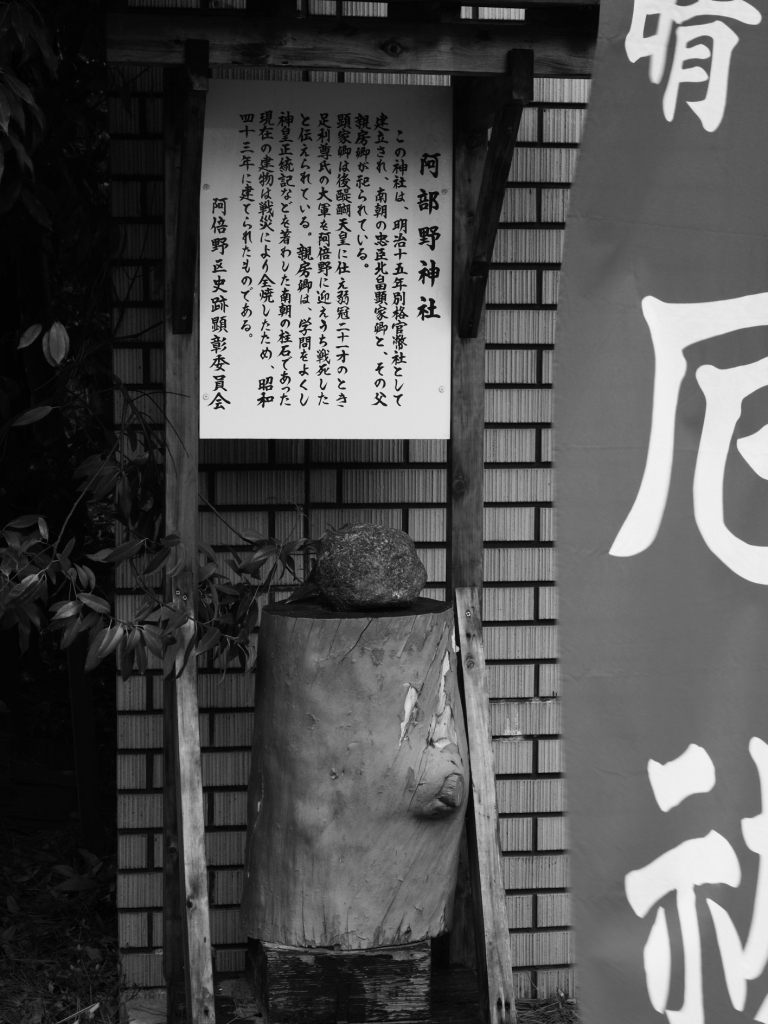 阿部野神社
この神社は、明治十五年別格官幣社として
建立され、南朝の忠臣北畠顕家卿と、その父
親房卿が祀られている。
顕家卿は後醍醐天皇に仕え弱冠二十一才のとき
足利尊氏の大軍を阿倍野に迎えうち戦死した
と伝えられている。親房卿は、学問をよくし
神皇正統記などを著わした南朝の柱石であった
現在の建物は戦災により全焼したため、昭和
四十三年に建てられたものである。
阿倍野区史跡顕彰委員会
晴
厄